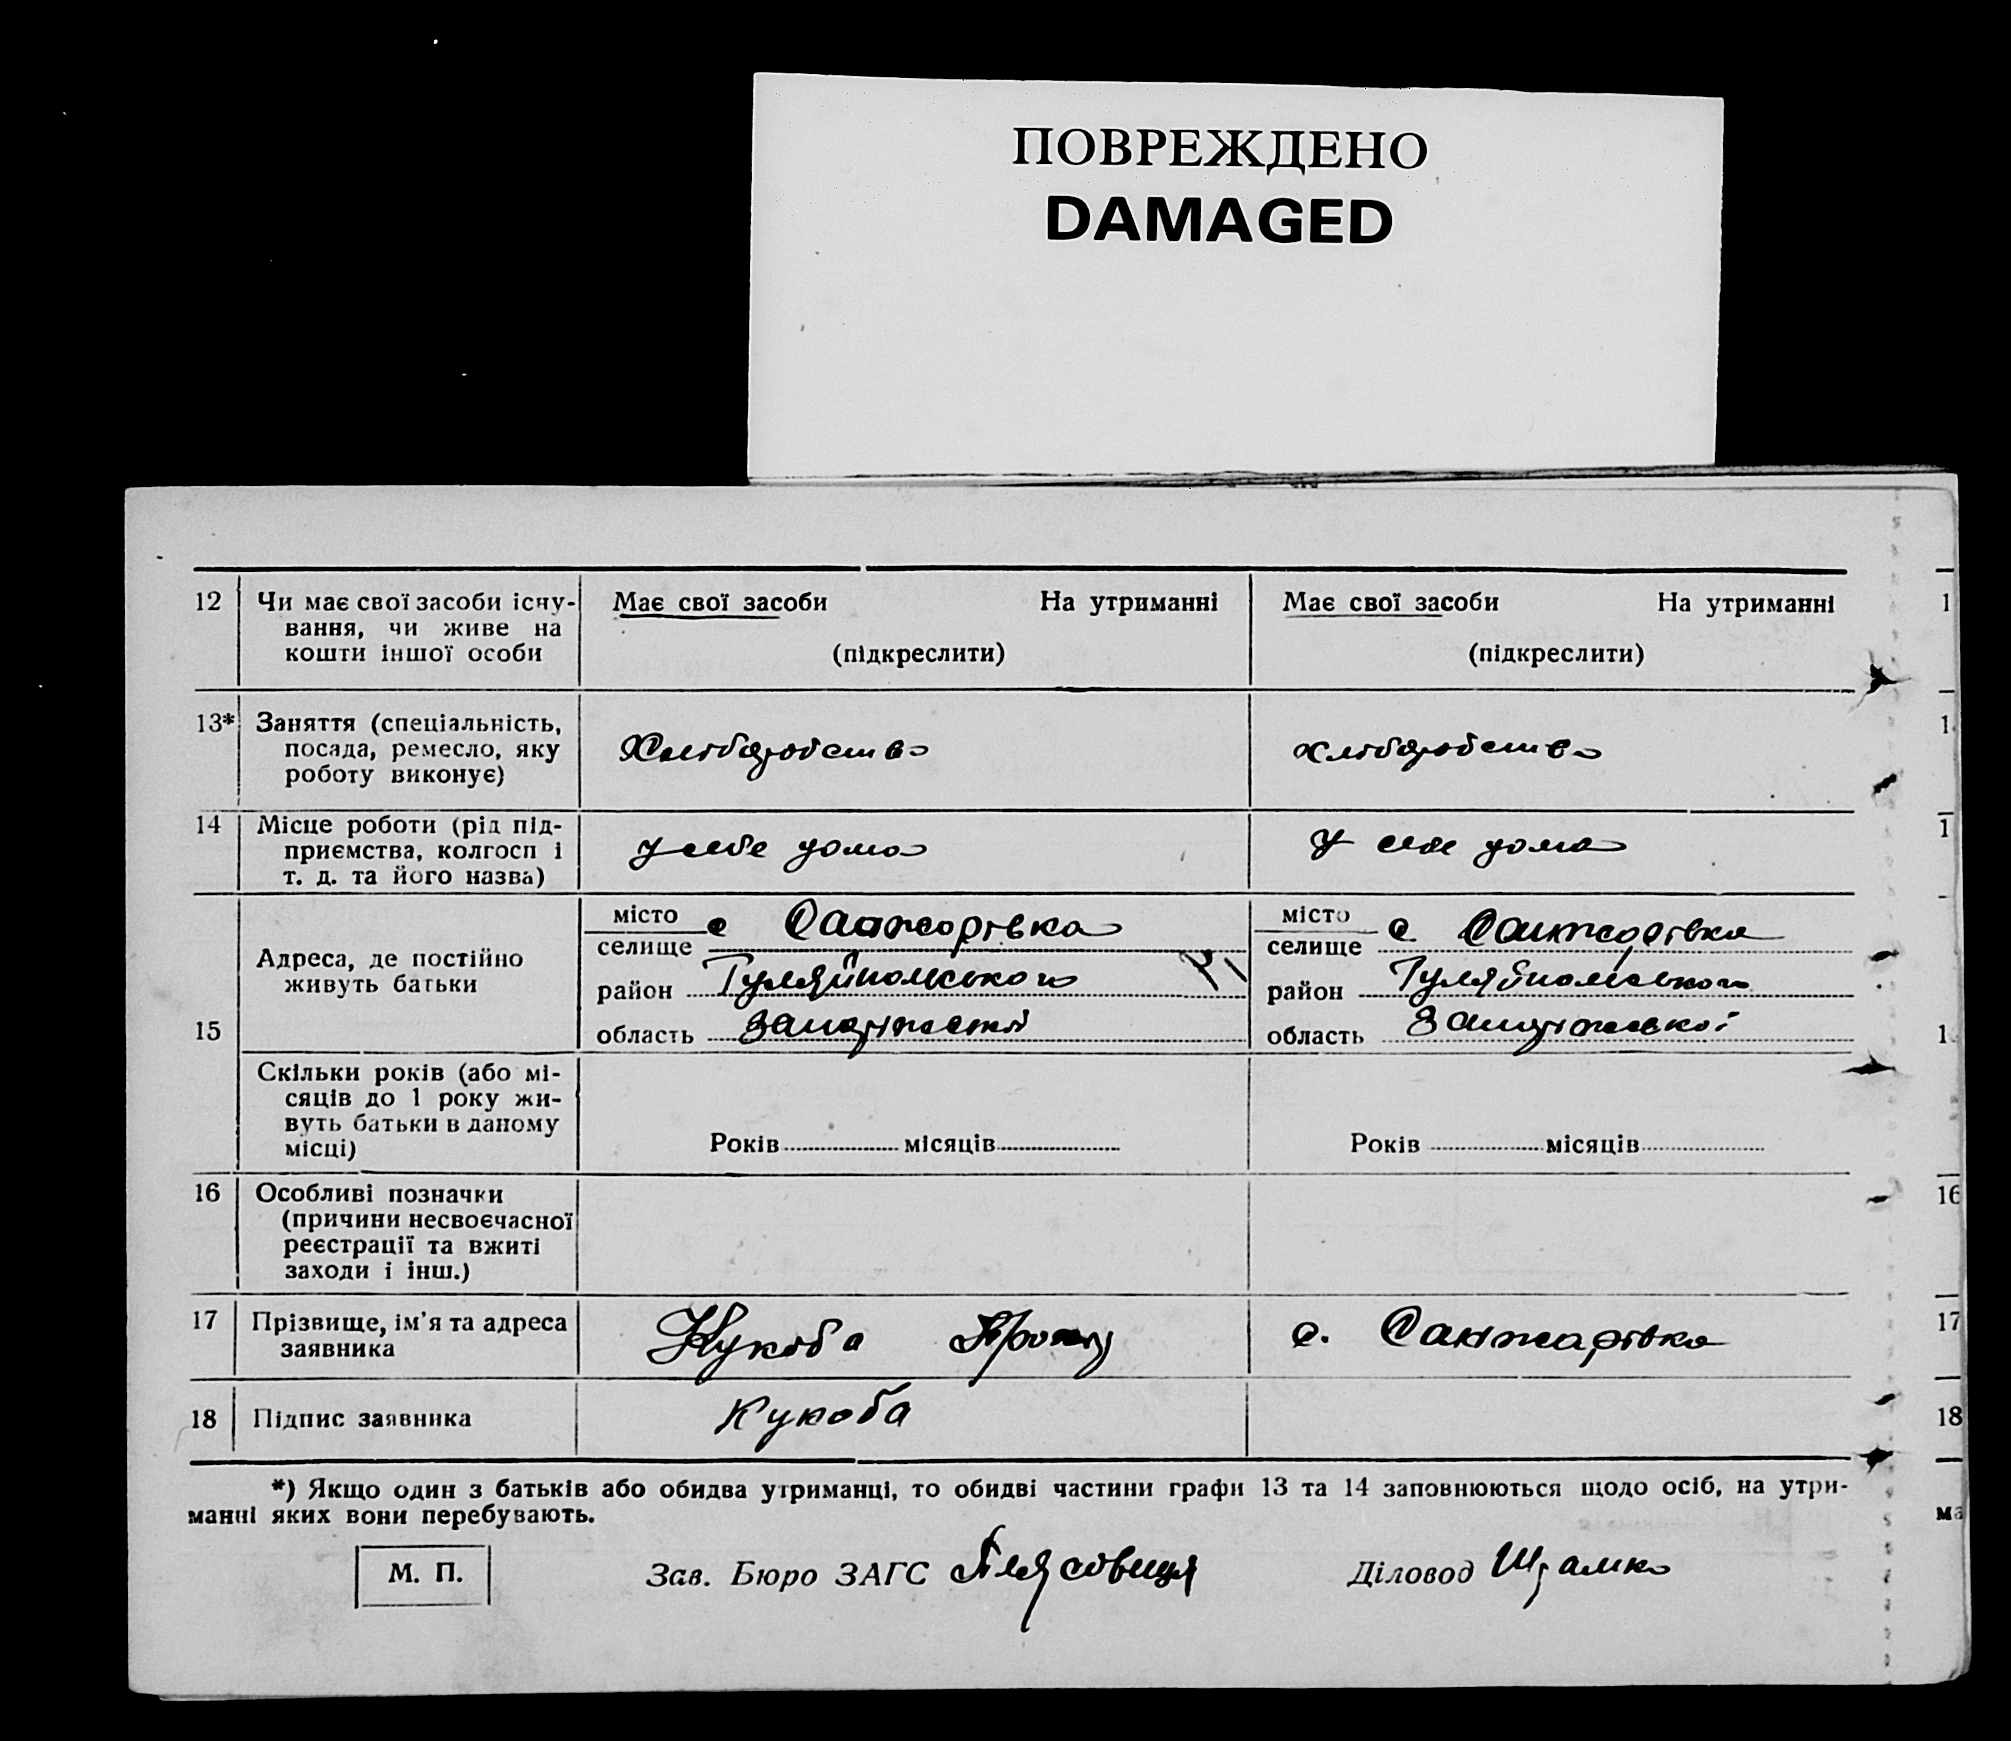 ПОВРЕЖДЕНО
DAMAGED
12 Чи має свої засоби існу-
вання, чи живе на
кошти іншої особи
Має свої засоби На утриманні
(підкреслити)
Має свої засоби На утриманні
(підкреслити)
1
13* Заняття (спеціальність,
посада, ремесло, яку
роботу виконує)
Хліборобство
хліборобство
1
14 Місце роботи (рід під-
приємства, колгосп і
т. д. та його назва)
у себе дома
у себе дома
1
15
Адреса, де постійно
живуть батьки
місто
селище
с Санжарівка
район Гуляйпольського
область
місто
селище
с. Санжарівка
район Гуляйпольського
область Запорізької
1
Скільки років (або мі-
сяців до 1 року жи-
вуть батьки в даному
місці)
Років місяців
Років місяців
16 Особливі позначки
(причини несвоєчасної
реєстрації та вжиті
заходи і інш.)
16
17 Прізвище, ім'я та адреса
заявника
Кукоба
с. Санжарівка
17
18 Підпис заявника
Кукоба
18
*) Якщо один з батьків або обидва утриманці, то обидві частини графи 13 та 14 заповнюються щодо осіб, на утри-
манні яких вони перебувають.
ма
М. П.
Зав. Бюро ЗАГС
Діловод Шрамко